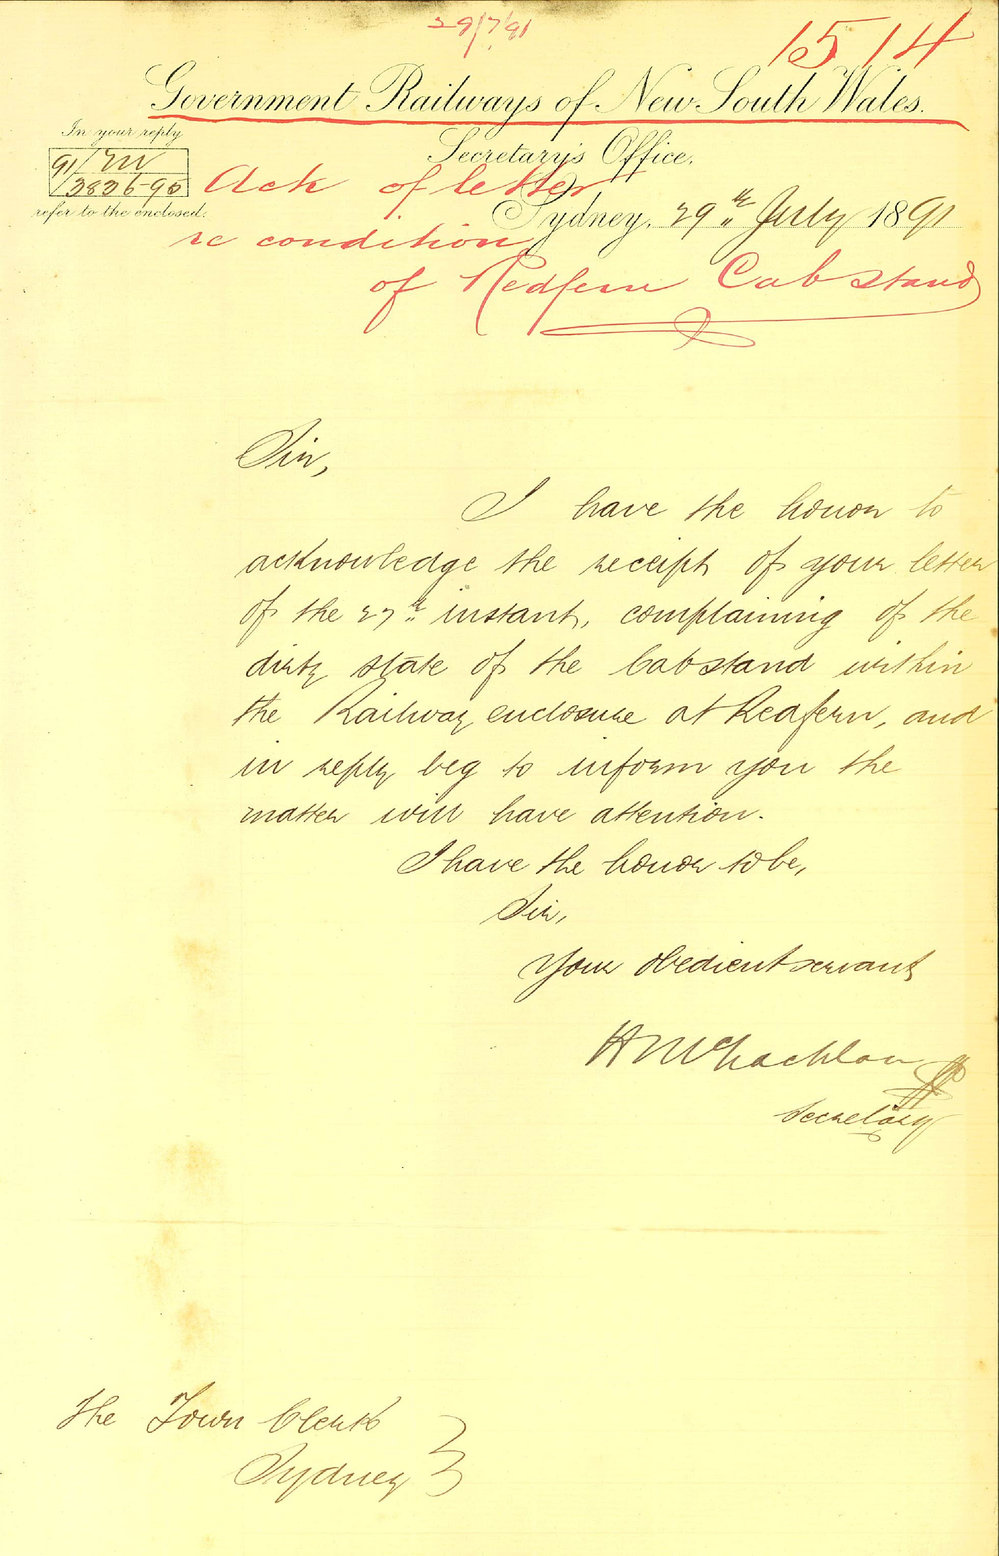 29/7/91
1514
Government Railways of New South Wales.
In your reply
Secretary's Office,
91/
refer to the enclosed.
Ack of letter
Sydney, 29th July 1891
re condition
of Redfern Cab stand
Sir,
I have the honor to
acknowledge the receipt of your letter
of the 27th instant, complaining of the
dirty state of the Cabstand within
the Railway enclosure at Redfern, and
in reply beg to inform you the
matter will have attention.
I have the honor to be,
Sir,
Your obedient servant
H McLachlan
Secretary
The Town Clerk
Sydney